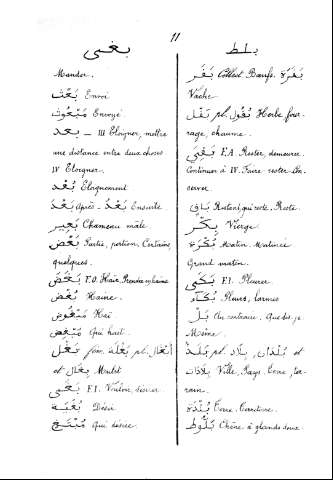 11
بغى
Mander.
بَعْث Envoi
مَبْعُوث Envoyé
بعد — III Eloigner, mettre
une distance entre deux choses
IV Eloigner.
بُعْد Eloignement
بَعْدَ Après — بَعْدُ Ensuite
بَعِير Chameau mâle
بَعْض Partie, portion. Certains,
quelques.
بَغَضَ F.O. Haïr, Prendre en haine
بُغْض Haine.
مَبْغُوض Haï
مُبْغِض Qui hait.
بَغْل fém. بَغْلَة pl. أَبْغَال
et بِغَال Mulet
بَغَى F.I. Vouloir, désirer
بُغْيَة Désir
Qui désire.
بلط
بَقَر Collect. Bœufs. بَقَرَة
Vache
بَقْل pl. بُقُول Herbe four-
rage, chaume.
بَقِيَ F.A. Rester, demeurer.
Continuer à IV. Faire rester. Con-
server.
بَاقٍ Restant, qui reste, Reste.
بِكْر Vierge
بُكْرَة Matin. Matinée
Grand matin.
بَكَى F.I. Pleurer
بُكَاء Pleurs, larmes
بَلْ Au contraire. Que dis-je
Même.
بَلَد pl. بِلَاد, بُلْدَان et
Ville, Pays, Terre, ter-
rain.
بَلْدَة Terre. Territoire.
بَلُّوط Chêne à glands doux.